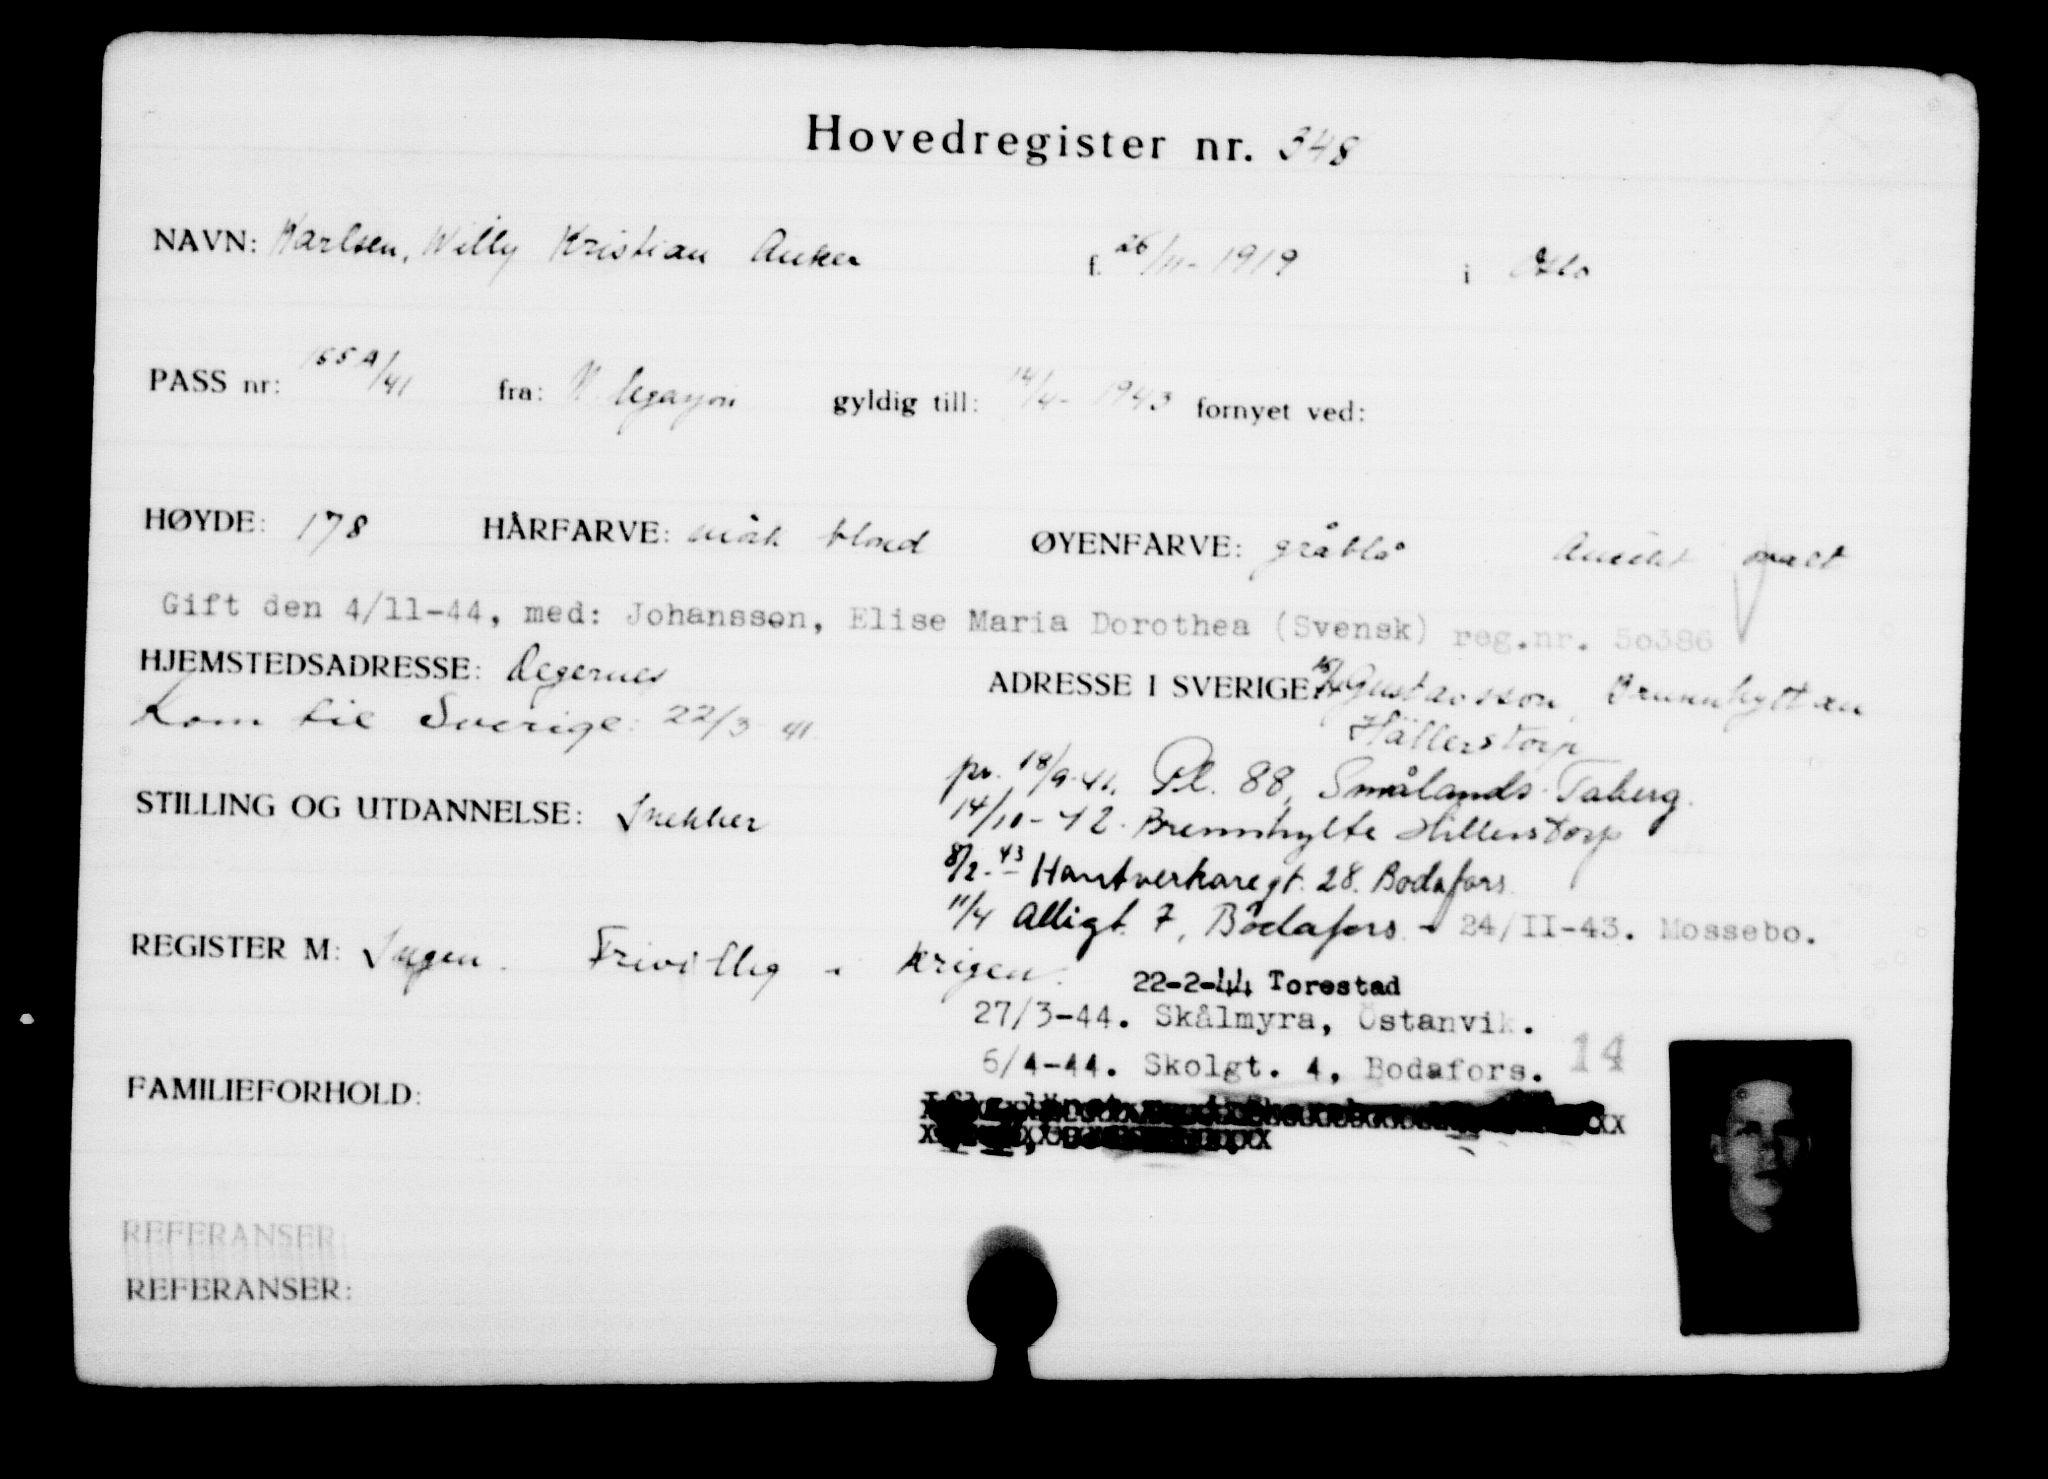 Hovedregister nr. 348
NAVN: Karlsen, Willy Kristian Anker f. 26/11-1919 i Oslo
PASS nr: 155A/41 fra: N. legasjon gyldig till: 14/4-1943 fornyet ved:
HØYDE: 178 HÅRFARVE: mørk blond ØYENFARVE: gråblå Ansikt ovalt
Gift den 4/11-44, med: Johansson, Elise Maria Dorothea (Svensk) reg.nr. 50386
HJEMSTEDSADRESSE: Degernes ADRESSE I SVERIGE: Gustavsson, Brunnhyltan
Kom til Sverige: 22/3 41. Hällerstorp
pr. 18/9-42. Pl. 88, Smålands-Taberg.
STILLING OG UTDANNELSE: Snekker 14/10-42. Brennhylte Hillerstorp
8/2-43 Hantverkaregt. 28. Bodafors.
11/4 Alligt. 7, Bodafors - 24/II-43. Mossebo.
REGISTER M: Ingen. Frivillig i krigen.
22-2-44 Torestad
27/3-44. Skålmyra, Östanvik.
5/4-44. Skolgt. 4, Bodafors. 14
FAMILIEFORHOLD:
REFERANSER:
REFERANSER: